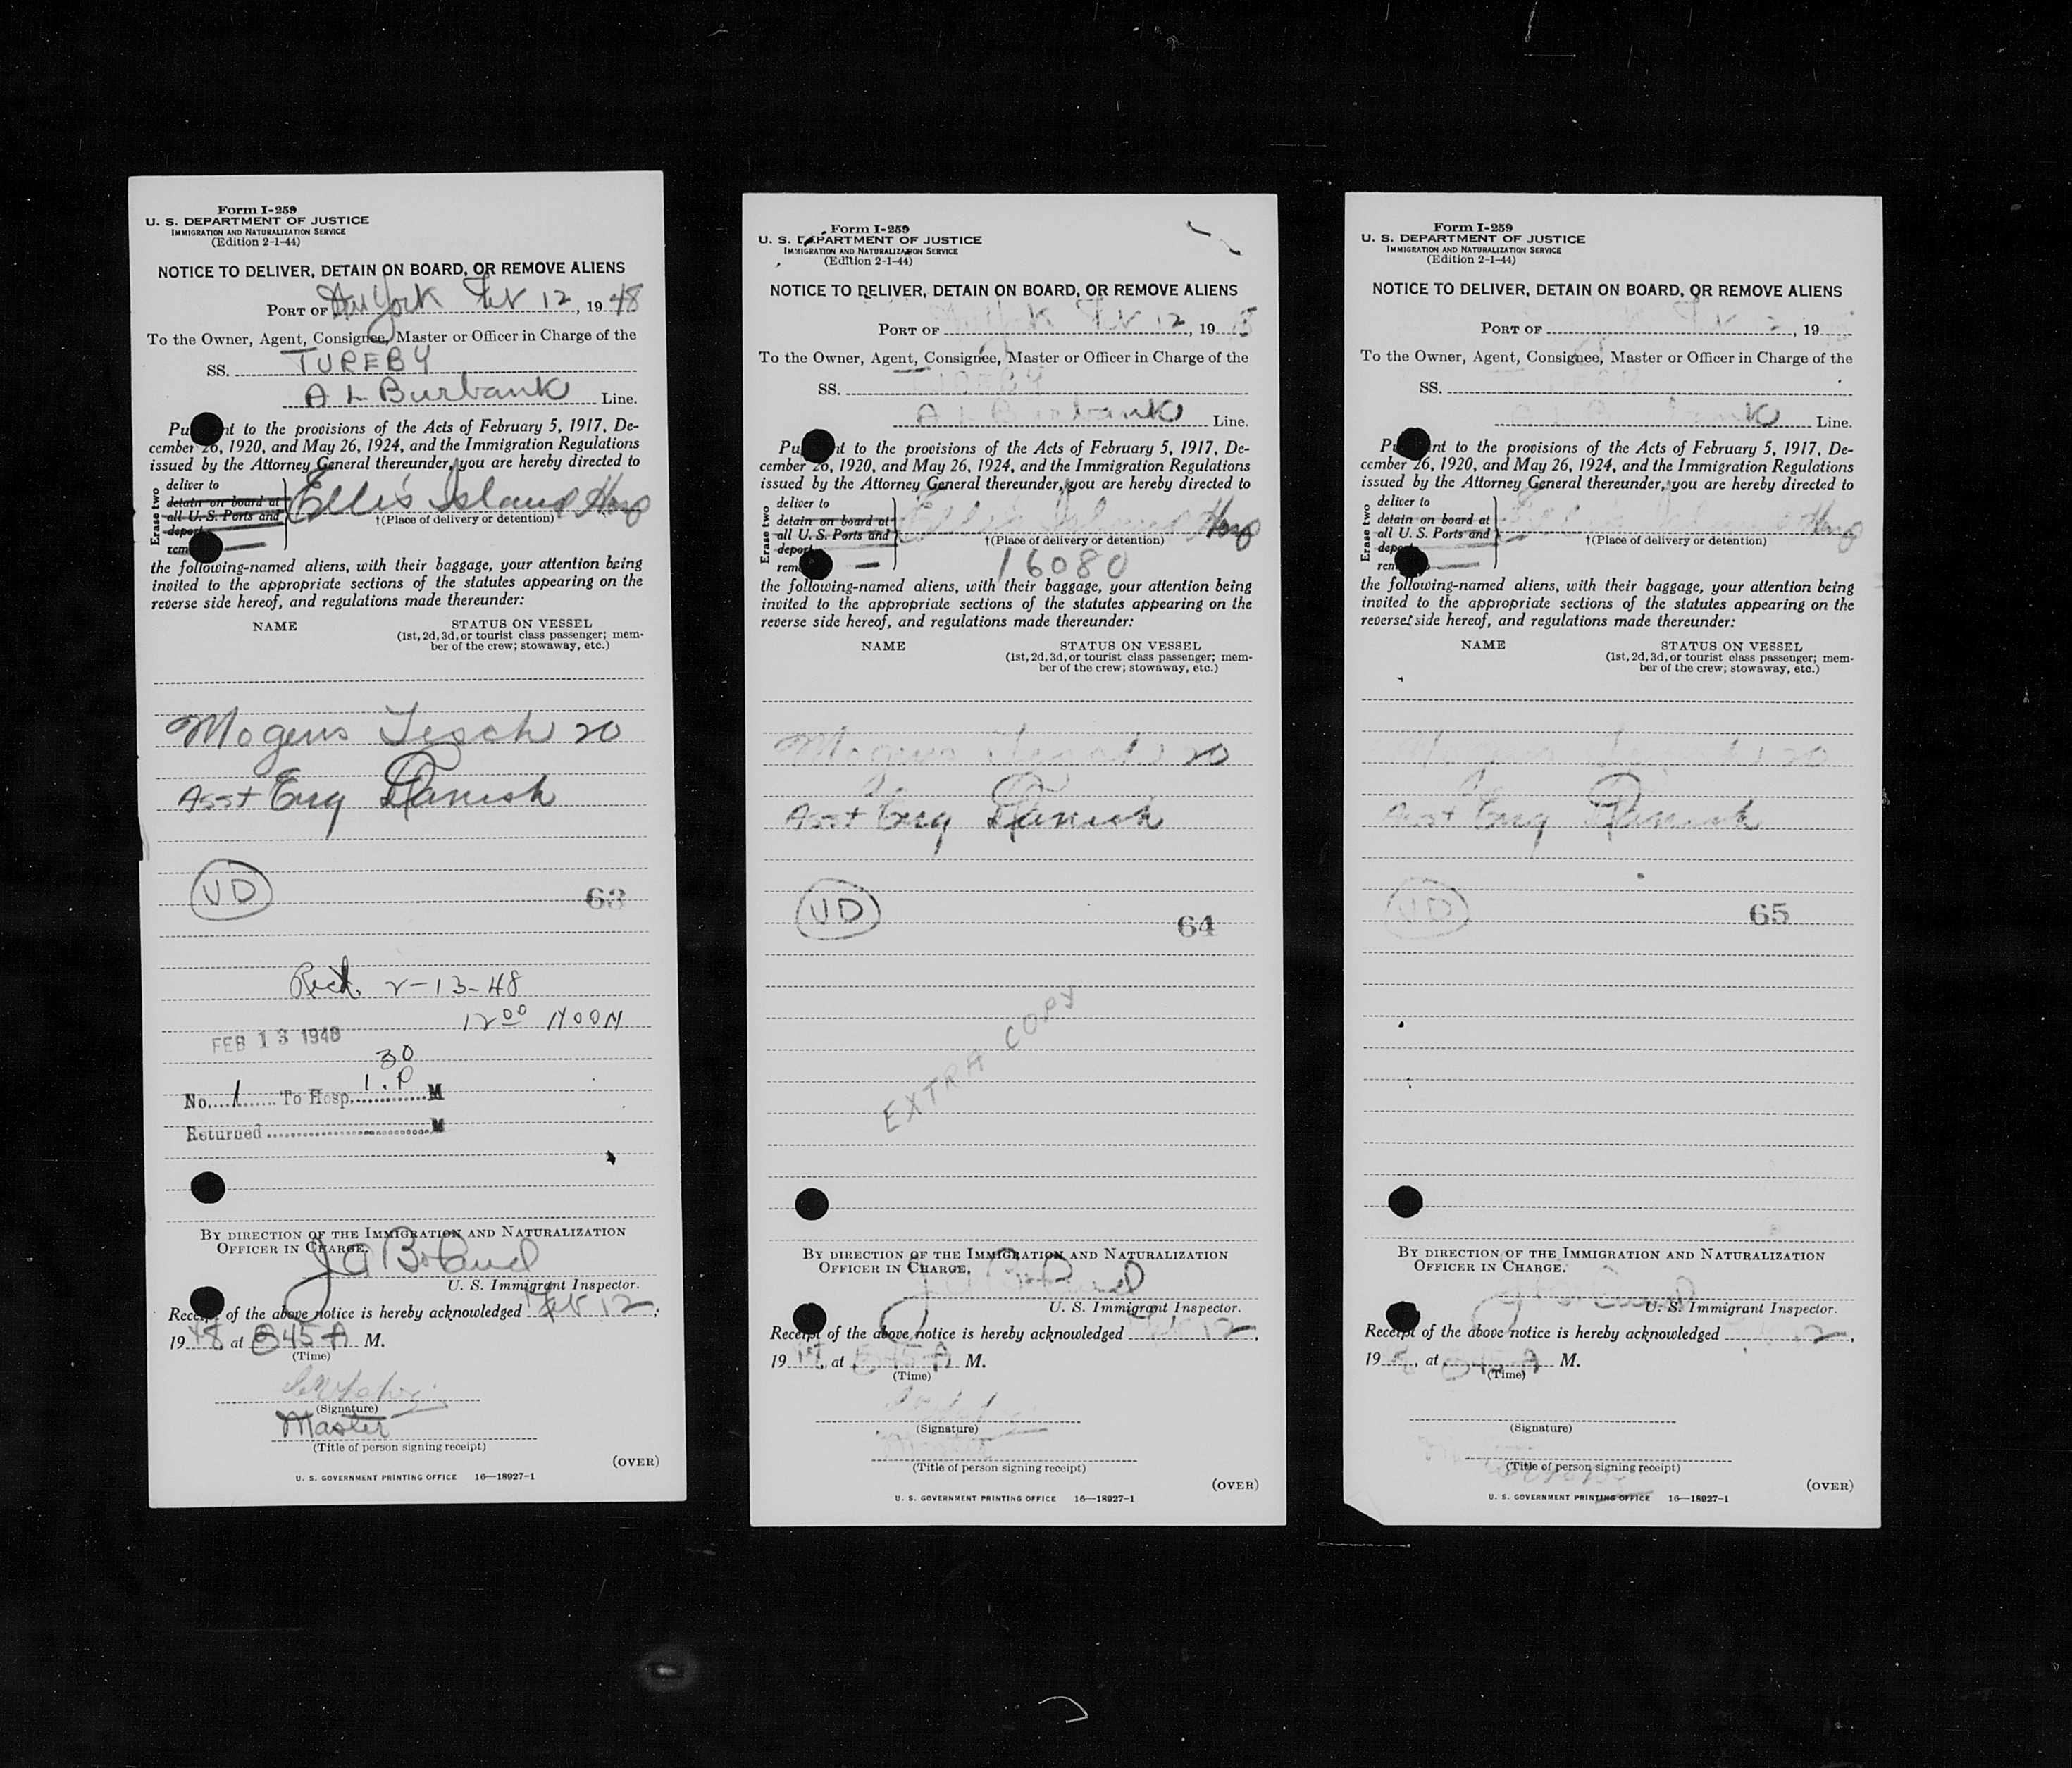 Form I-259
U. S. DEPARTMENT OF JUSTICE
IMMIGRATION AND NATURALIZATION SERVICE
(Edition 2-1-44)
NOTICE TO DELIVER, DETAIN ON BOARD, OR REMOVE ALIENS
PORT OF New York Feb 12, 1948
To the Owner, Agent, Consignee, Master or Officer in Charge of the
SS. TUREBY
A L Burbank Line.
Pu nt to the provisions of the Acts of February 5, 1917, De-
cember 26, 1920, and May 26, 1924, and the Immigration Regulations
issued by the Attorney General thereunder, you are hereby directed to
Erase two
deliver to
detain on board at
all U. S. Ports and
deport
rem
Ellis Island Hosp
†(Place of delivery or detention)
the following-named aliens, with their baggage, your attention being
invited to the appropriate sections of the statutes appearing on the
reverse side hereof, and regulations made thereunder:
NAME STATUS ON VESSEL
(1st, 2d, 3d, or tourist class passenger; mem-
ber of the crew; stowaway, etc.)
Mogens Tesch 20
Asst Eng Danish
VD
63
Recd. 2-13-48
12 00 NOON
FEB 13 1948
30
No. 1 To Hosp. 1. P M
Returned M
BY DIRECTION OF THE IMMIGRATION AND NATURALIZATION
OFFICER IN CHARGE.
J A Boland
U. S. Immigrant Inspector.
Receipt of the above notice is hereby acknowledged Feb 12,
1948 at 845 A M.
(Time)
(Signature)
Master
(Title of person signing receipt)
(OVER)
U. S. GOVERNMENT PRINTING OFFICE 16—18927-1
Form I-259
U. S. DEPARTMENT OF JUSTICE
IMMIGRATION AND NATURALIZATION SERVICE
(Edition 2-1-44)
NOTICE TO DELIVER, DETAIN ON BOARD, OR REMOVE ALIENS
PORT OF York Feb 12, 19 8
To the Owner, Agent, Consignee, Master or Officer in Charge of the
SS. TUREBY
A L Burbank Line.
Pu nt to the provisions of the Acts of February 5, 1917, De-
cember 26, 1920, and May 26, 1924, and the Immigration Regulations
issued by the Attorney General thereunder, you are hereby directed to
Erase two
deliver to
detain on board at
all U. S. Ports and
deport
rem
Ellis Island Hosp
†(Place of delivery or detention)
16080
the following-named aliens, with their baggage, your attention being
invited to the appropriate sections of the statutes appearing on the
reverse side hereof, and regulations made thereunder:
NAME STATUS ON VESSEL
(1st, 2d, 3d, or tourist class passenger; mem-
ber of the crew; stowaway, etc.)
Mogens Tesch 20
Asst Eng Danish
VD
64
EXTRA COPY
BY DIRECTION OF THE IMMIGRATION AND NATURALIZATION
OFFICER IN CHARGE.
J A Boland
U. S. Immigrant Inspector.
Receipt of the above notice is hereby acknowledged 12,
19 , at 845 A M.
(Time)
(Signature)
(Title of person signing receipt)
(OVER)
U. S. GOVERNMENT PRINTING OFFICE 16—18927-1
Form I-259
U. S. DEPARTMENT OF JUSTICE
IMMIGRATION AND NATURALIZATION SERVICE
(Edition 2-1-44)
NOTICE TO DELIVER, DETAIN ON BOARD, OR REMOVE ALIENS
PORT OF , 19
To the Owner, Agent, Consignee, Master or Officer in Charge of the
SS.
Line.
Pu nt to the provisions of the Acts of February 5, 1917, De-
cember 26, 1920, and May 26, 1924, and the Immigration Regulations
issued by the Attorney General thereunder, you are hereby directed to
Erase two
deliver to
detain on board at
all U. S. Ports and
deport
rem
Ellis Island Hosp
†(Place of delivery or detention)
the following-named aliens, with their baggage, your attention being
invited to the appropriate sections of the statutes appearing on the
reverse side hereof, and regulations made thereunder:
NAME STATUS ON VESSEL
(1st, 2d, 3d, or tourist class passenger; mem-
ber of the crew; stowaway, etc.)
Mogens Tesch 20
Asst Eng Danish
VD
65
BY DIRECTION OF THE IMMIGRATION AND NATURALIZATION
OFFICER IN CHARGE.
U. S. Immigrant Inspector.
Receipt of the above notice is hereby acknowledged 12,
19 , at 845 A M.
(Time)
(Signature)
(Title of person signing receipt)
(OVER)
U. S. GOVERNMENT PRINTING OFFICE 16—18927-1